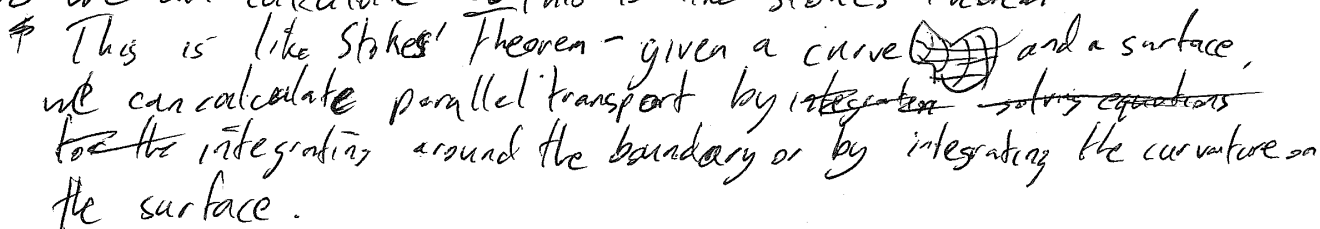 This is like Stokes' Theorem - given a curve and a surface,
we can calculate parallel transport by integration solving equations
for the integrating around the boundary or by integrating the curvature on
the surface.